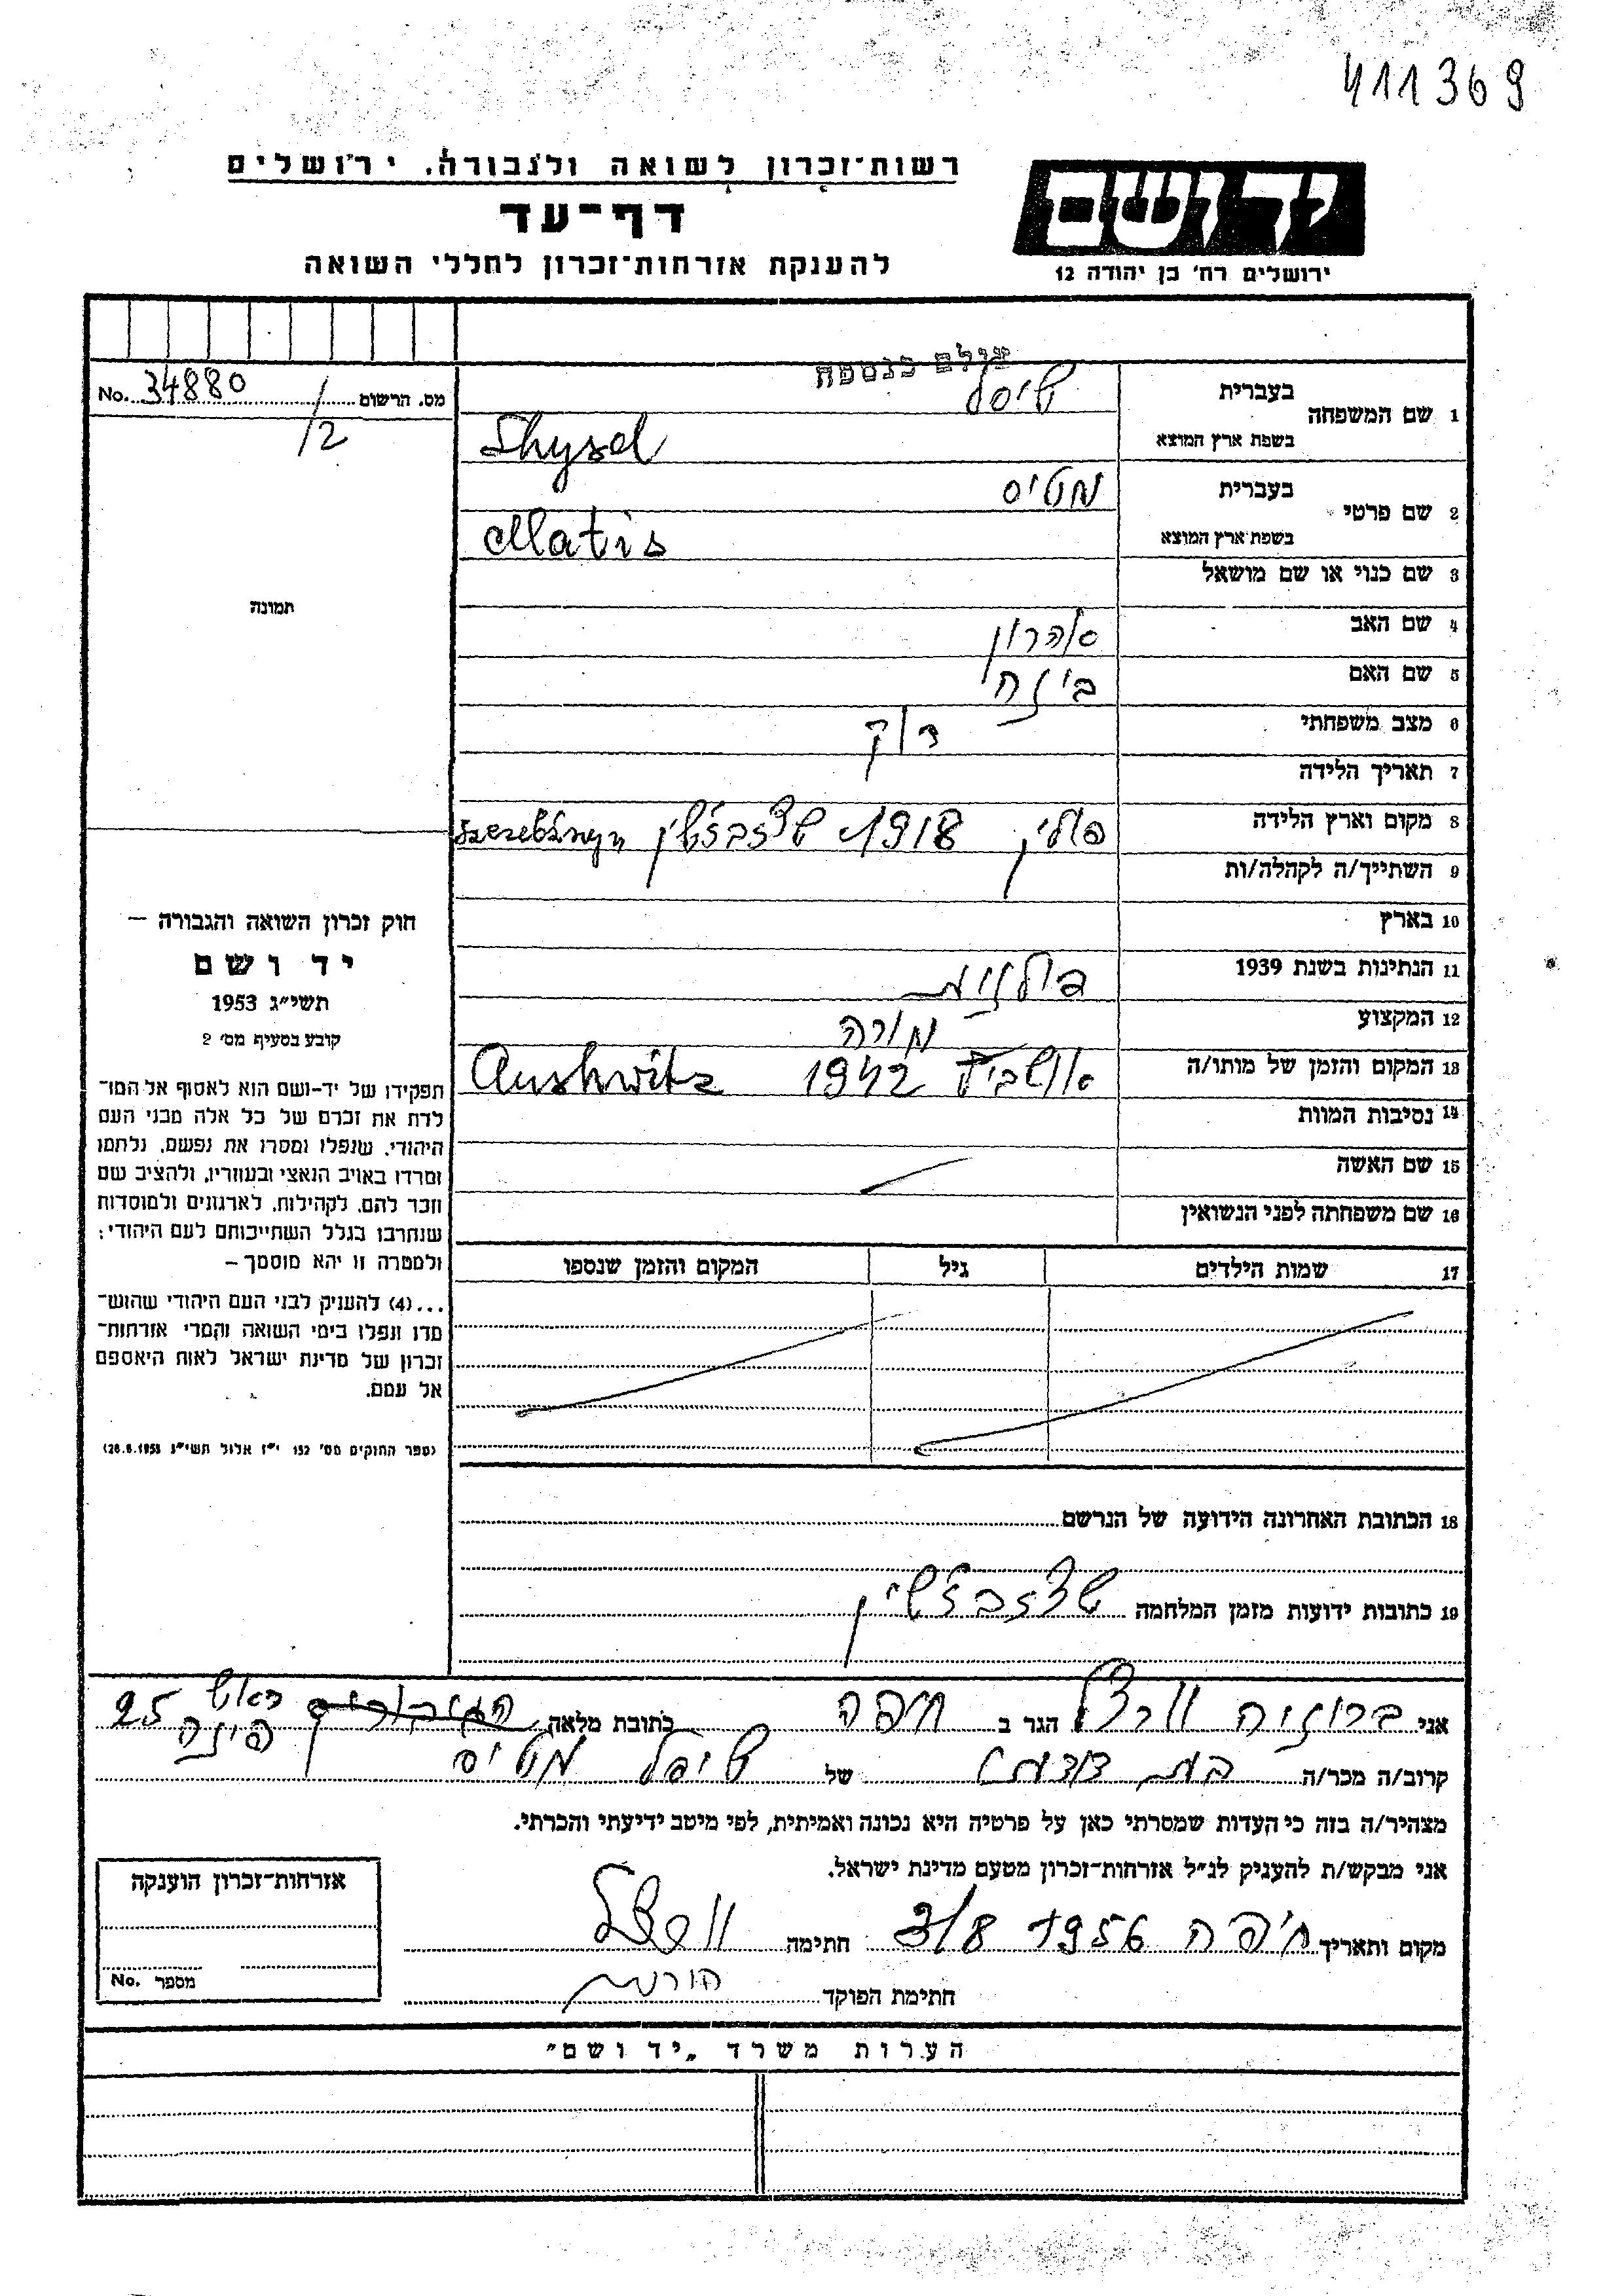 411369
רשות־זכרון לשואה ולגבורה, ירושלים
יד ושם
דף־עד
להענקת אזרחות־זכרון לחללי השואה
ירושלים רח' בן יהודה 12
צולם כנספח
מס. הרשום 34880 No.
/2
1 שם המשפחה
בעברית
שיסל
בשפת ארץ המוצא
Shysel
2 שם פרטי
בעברית
מטיס
בשפת ארץ המוצא
Matis
3 שם כנוי או שם מושאל
תמונה
4 שם האב אהרון
5 שם האם
6 מצב משפחתי רוק
7 תאריך הלידה
8 מקום וארץ הלידה פולין 1918
9 השתייך/ה לקהלה/ות
10 בארץ
11 הנתינות בשנת 1939 פולנית
12 המקצוע מורה
13 המקום והזמן של מותו/ה אושביץ 1942 Aushwitz
14 נסיבות המוות
15 שם האשה
16 שם משפחתה לפני הנשואין
17 שמות הילדים גיל המקום והזמן שנספו
חוק זכרון השואה והגבורה –
יד ושם
תשי"ג 1953
קובע בסעיף מס' 2
תפקידו של יד-ושם הוא לאסוף אל המו־
לדת את זכרם של כל אלה מבני העם
היהודי, שנפלו ומסרו את נפשם, נלחמו
ומרדו באויב הנאצי ובעוזריו, ולהציב שם
וזכר להם, לקהילות, לארגונים ולמוסדות
שנחרבו בגלל השתייכותם לעם היהודי;
ולמטרה זו יהא מוסמך –
...(4) להעניק לבני העם היהודי שהוש־
מדו ונפלו בימי השואה והמרי אזרחות־
זכרון של מדינת ישראל לאות היאספם
אל עמם.
(ספר החוקים מס' 132 י"ז אלול תשי"ג 28.8.1953)
18 הכתובת האחרונה הידועה של הנרשם
19 כתובות ידועות מזמן המלחמה
אני ברוניה הגר ב חיפה כתובת מלאה ראש פינה 25
קרוב/ה מכר/ה של שיסל מטיס
מצהיר/ה בזה כי העדות שמסרתי כאן על פרטיה היא נכונה ואמיתית, לפי מיטב ידיעתי והכרתי.
אני מבקש/ת להעניק לנ"ל אזרחות־זכרון מטעם מדינת ישראל.
מקום ותאריך חיפה 1956 3/8 חתימה
חתימת הפוקד
אזרחות־זכרון הוענקה
מספר No.
הערות משרד „יד ושם"